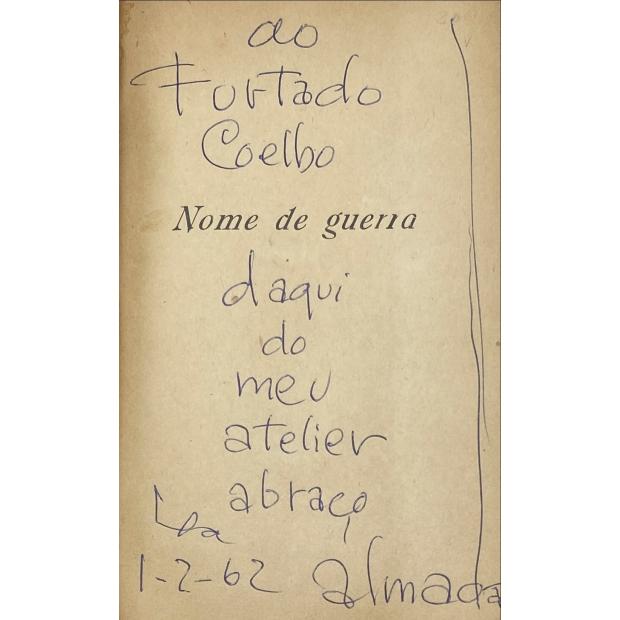 ao
Furtado
Coelho
Nome de guerra
daqui
do
meu
atelier
abraço
Lxa
1-2-62 almada